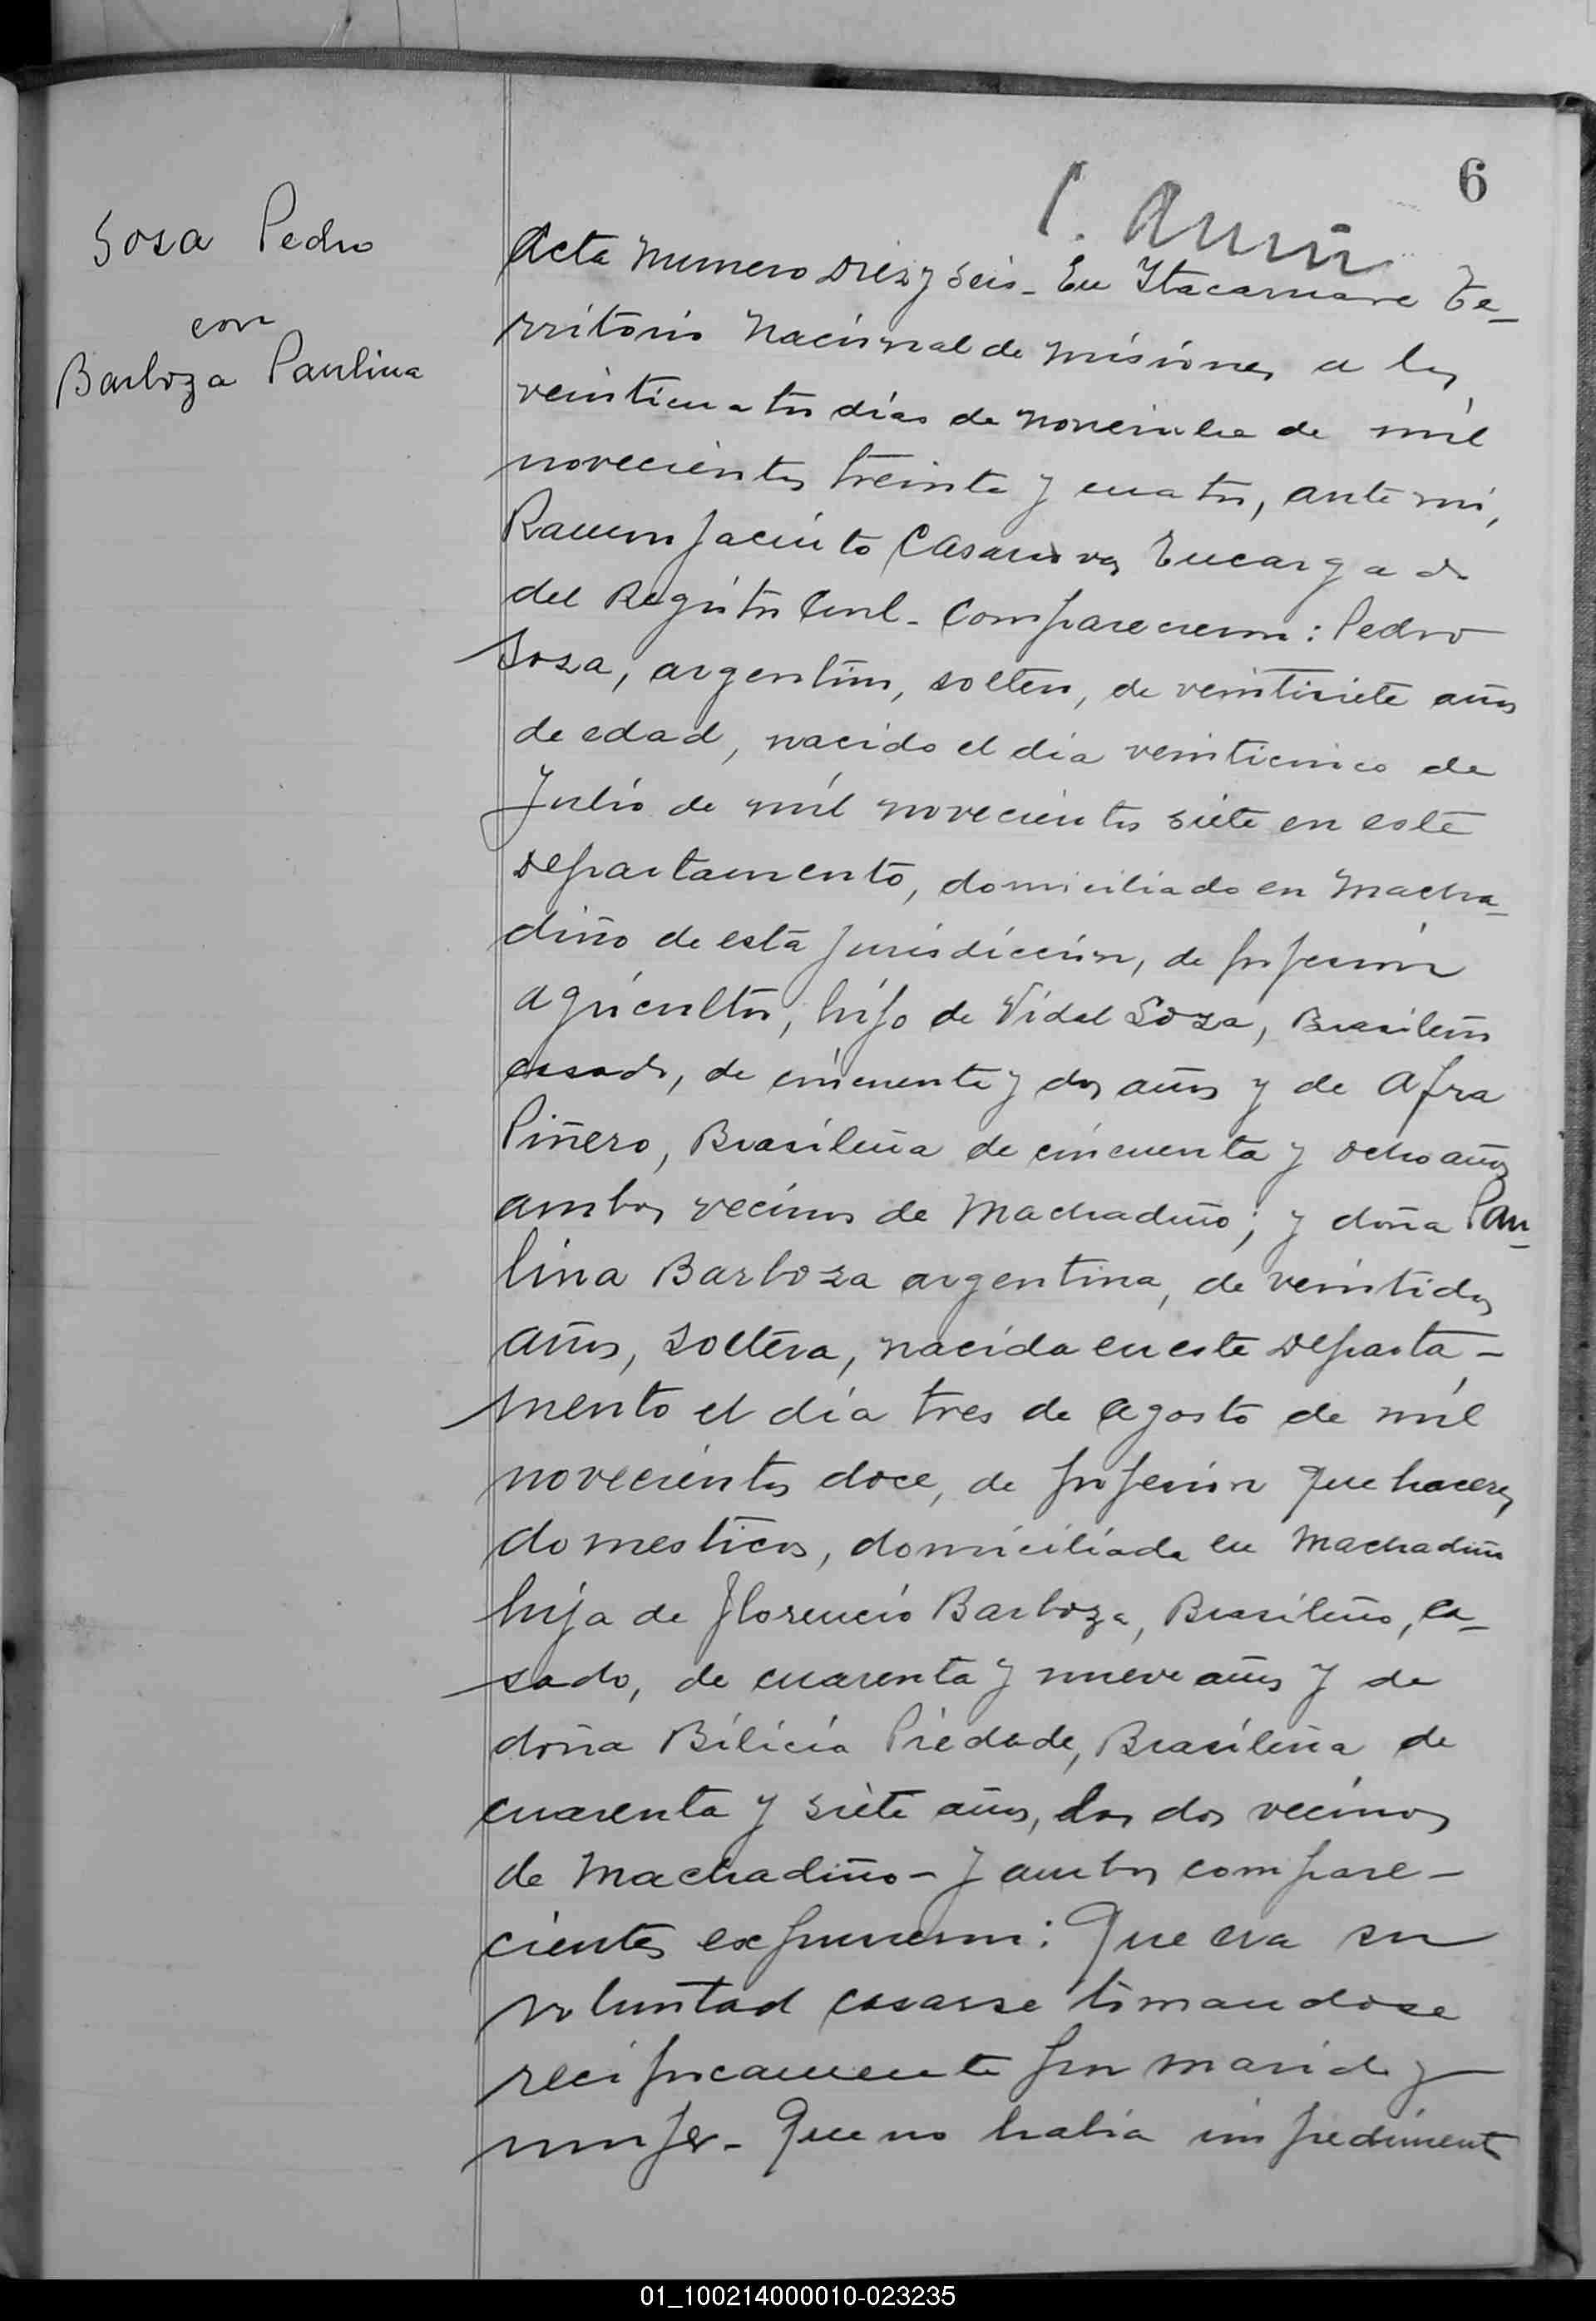 6
Sosa Pedro
con
Barboza Paulina
Acta Numero Diez y Seis - En Itacaruare Te-
rritorio Nacional de Misiones a los
veinticuatro días de Noviembre de mil
novecientos treinta y cuatro, ante mi,
Ramon Jacinto Casanova, Encargado
del Registro Civil - Comparecieron: Pedro
Soza, argentino, soltero, de veintisiete años
de edad, nacido el día veinticinco de
Julio de mil novecientos siete en este
Departamento, domiciliado en Macha-
diño de esta Jurisdicción, de profesión
agricultor, hijo de Vidal Soza, Brasileño
casado, de cincuenta y dos años y de Afra
Piñero, Brasileña de cincuenta y ocho años
ambos vecinos de Machadiño; y doña Pau-
lina Barboza argentina, de veintidos
años, soltera, nacida en este Departa-
mento el día tres de Agosto de mil
novecientos doce, de profesión que haceres
domesticos, domiciliada en Machadiño
hija de Florencio Barboza, Brasileño, ca-
sado, de cuarenta y nueve años y de
doña Bilicia Piedade, Brasileña de
cuarenta y siete años, los dos vecinos
de Machadiño - y ambos compare-
cientes expusieron: Que era su
voluntad casarse tomandose
reciprocamente por marido y
mujer - Que no habia impedimento
01_100214000010-023235